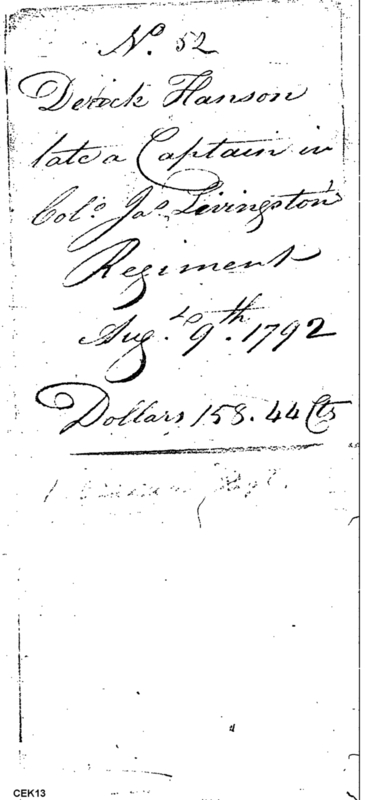 No. 52
Derick Hanson
late a Captain in
Colo. Jas. Livingston's
Regiment
Augt. 9th. 1792
Dollars 158. 44 Cts
CEK13